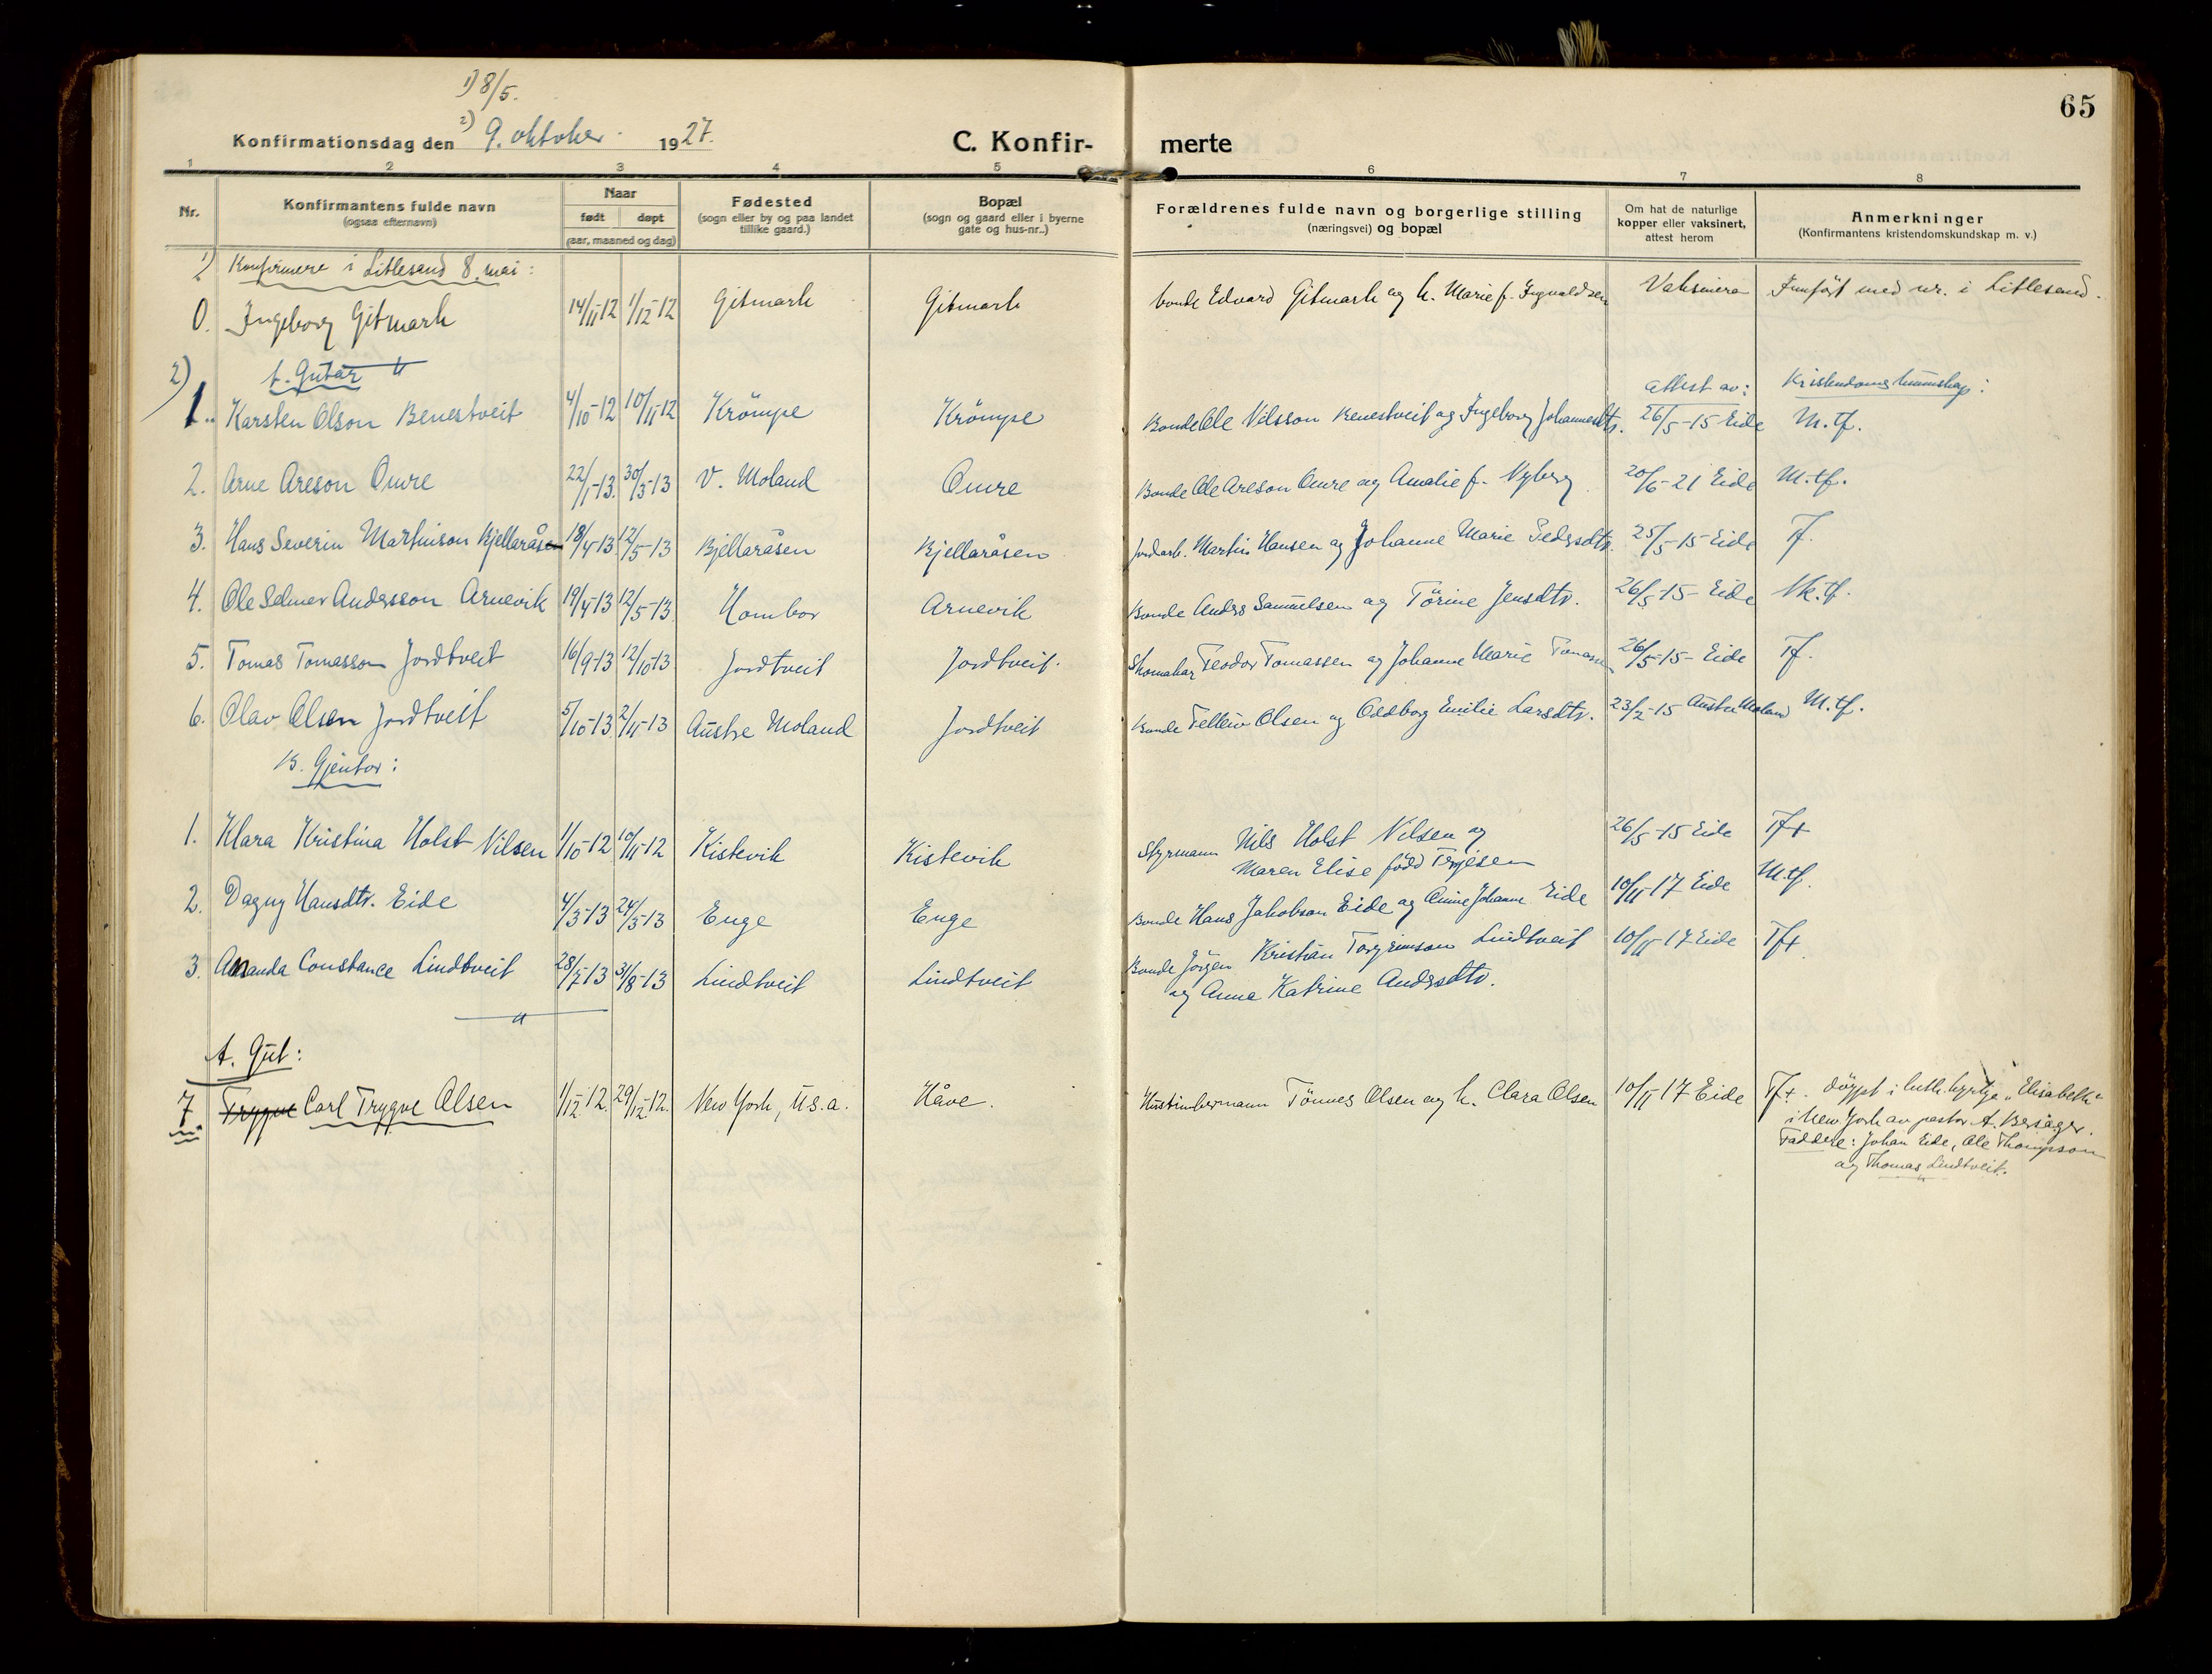 65
1) 8/5.
Konfirmationsdag den 2) 9. oktober 1927.
C. Konfir-
merte
1 2 3 4 5 6 7 8
Nr.
Konfirmantens fulde navn
(ogsaa efternavn)
Naar
født døpt
(aar, maaned og dag)
Fødested
(sogn eller by og paa landet
tillike gaard.)
Bopæl
(sogn og gaard eller i byerne
gate og hus-nr..)
Forældrenes fulde navn og borgerlige stilling
(næringsvei) og bopæl
Om hat de naturlige
kopper eller vaksinert,
attest herom
Anmerkninger
(Konfirmantens kristendomskundskap m. v.)
1) Konfirmere i Litlesand 8. mai:
0. Ingeborg Gitmark 14/11-12 1/12-12 Gitmark Gitmark bonde Edvard Gitmark og h. Marie f. Ingvaldsen Vaksinera Innført med nr. i Litlesand.
2) A. Gutar attest av: Kristendomskunnskap:
1. Karsten Olson Benestveit 4/10-12 10/11-12 Krömpe Krömpe Bonde Ole Nilsson Benestveit og Ingeborg Johannesdtr. 26/5-15 Eide M.tf.
2. Arne Areson Omre 22/1-13 30/3-13 V. Moland Omre Bonde Ole Areson Omre og Amalie f. Nyberg 20/6-21 Eide M.tf.
3. Hans Severin Martinson Kjellaråsen 18/4-13 12/5-13 Kjellaråsen Kjellaråsen Jordarb. Martin Hansen og Johanne Marie Pedersdtr. 25/5-15 Eide Tf.
4. Ole Selmer Andersson Arnevik 19/4-13 12/5-13 Hombor Arnevik Bonde Anders Samuelsen og Törine Jensdtr. 26/5-15- Eide Nk.tf.
5. Tomas Tomasson Jordtveit 16/9-13 12/10-13 Jordtveit Jordtveit. Skomakar Teodor Tomassen og Johanne Marie Tomassen 26/5-15- Eide Tf.
6. Olav Olsen Jordtveit 5/10-13 2/11-13 Austre Moland Jordtveit Bonde Tellew Olsen og Oddborg Emilie Larsdtr. 23/2-15 Austre Moland M.tf.
B. Gjentor:
1. Klara Kristina Holst Nilsen 1/10-12 10/11-12 Kistevik Kistevik Styrmann Nils Holst Nilsen og 26/5-15 Eide Tf+
Maren Elise född Terjesen
2. Dagny Hansdtr. Eide 4/3-13 24/3-13 Enge Enge Bonde Hans Jakobson Eide og Anne Johanne Eide 10/11-17 Eide M.tf.
3. Amanda Constance Lindtveit 28/7-13 31/8-13 Lindtveit Lindtveit Bonde Jörgen Kristian Torgrimson Lindtveit 10/11-17 Eide Tf+
og Anna Katrine Andersdtr.
A. Gut:
7 Trygve Carl Trygve Olsen 1/12-12. 29/12-12. New York, U.S.a. Håve. Hustimbermann Tönnes Olsen og h. Clara Olsen 10/11-17 Eide Tf+. döypt i luth. kyrkje "Elisabeth"
i New York av pastor A. Bersager.
Faddere: Johan Eide, Ole Thompson
og Thomas Lindtveit.